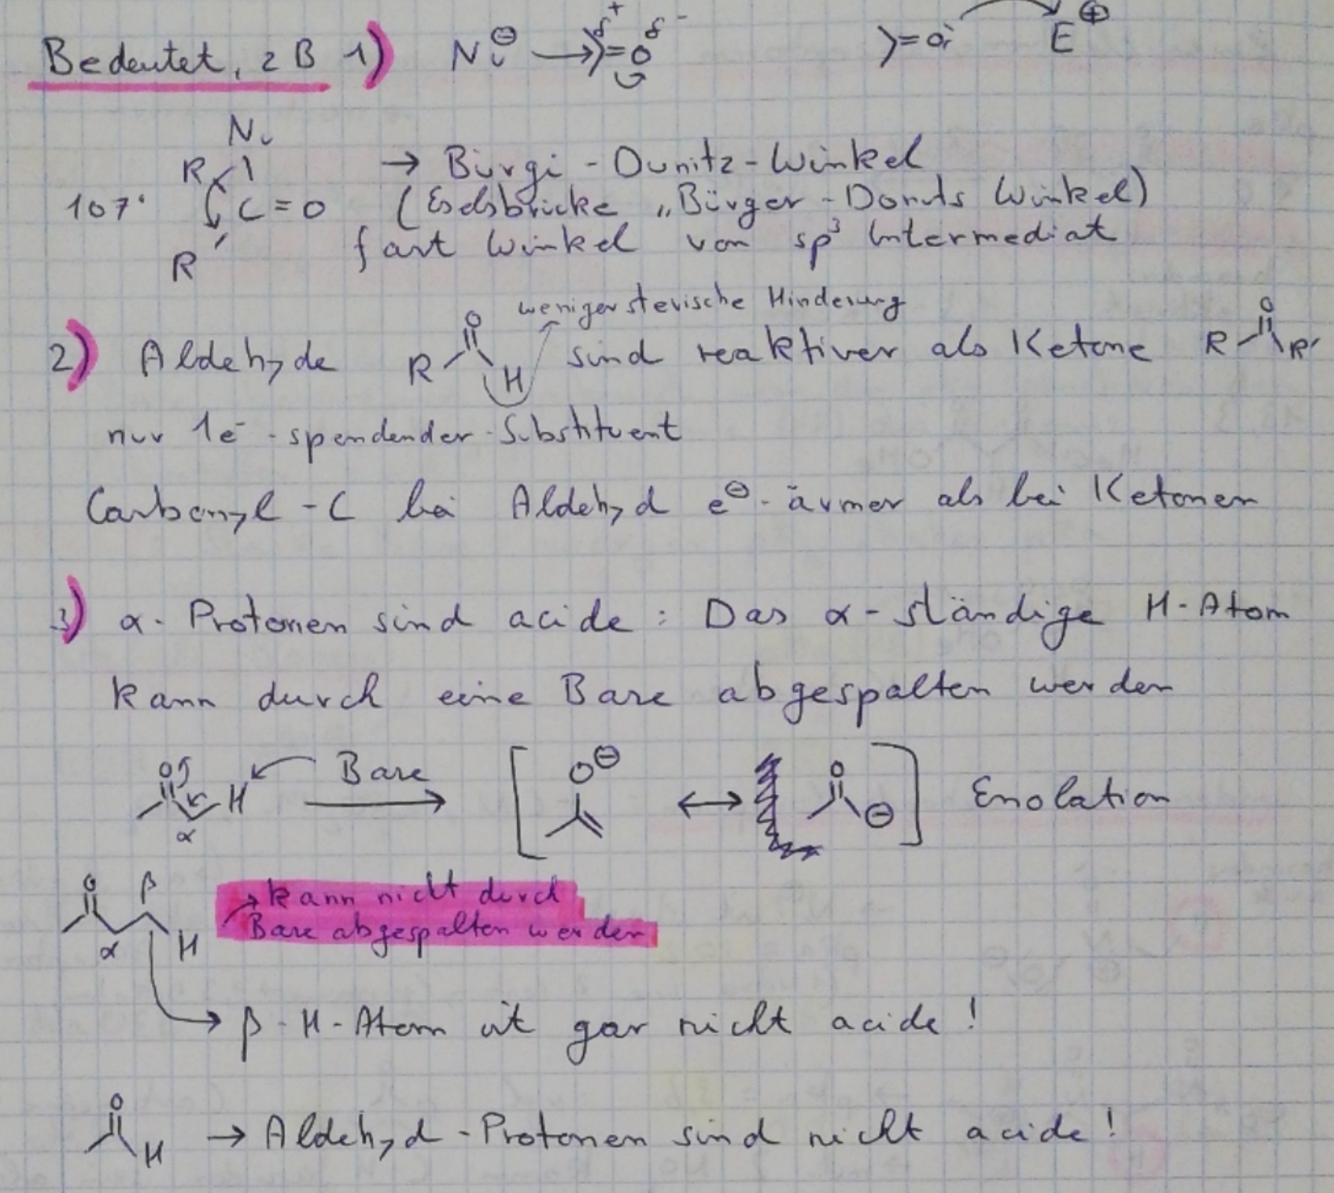 Bedeutet, z B 1) Nu⊖ → >=O δ+ δ- >=O E⊕
Nu
R
107° C=O → Bürgi-Dunitz-Winkel
(Eselsbrücke „Bürger-Donuts Winkel)
R' fast Winkel von sp³ Intermediat
weniger sterische Hinderung
2) Aldehyde R O H sind reaktiver als Ketone R O R'
nur 1e⁻-spendender-Substituent
Carbonyl-C bei Aldehyd e⊖-ärmer als bei Ketonen
3) α-Protonen sind acide: Das α-ständige H-Atom
kann durch eine Base abgespalten werden
O H α Base [ O⊖ ↔ O ⊖ ] Enolation
O β α H → kann nicht durch
Base abgespalten werden
→ β-H-Atom ist gar nicht acide!
O H → Aldehyd-Protonen sind nicht acide!